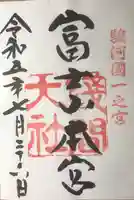 駿河國一之宮
富士本宮
淺間
大社
令和五年七月二十六日